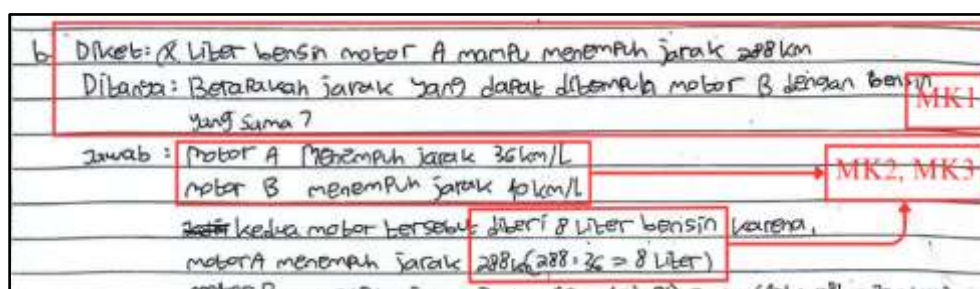 b. Diket: X Liter bensin motor A mampu menempuh jarak 288 km
Ditanya: Berapakah jarak yang dapat ditempuh motor B dengan bensin
yang sama?
MK1
Jawab: motor A Menempuh jarak 36 km/L
motor B menempuh jarak 40 km/L
MK2, MK3
kedua motor tersebut diberi 8 Liter bensin karena,
motor A menempuh jarak 288 km (288:36 = 8 Liter)
motor B